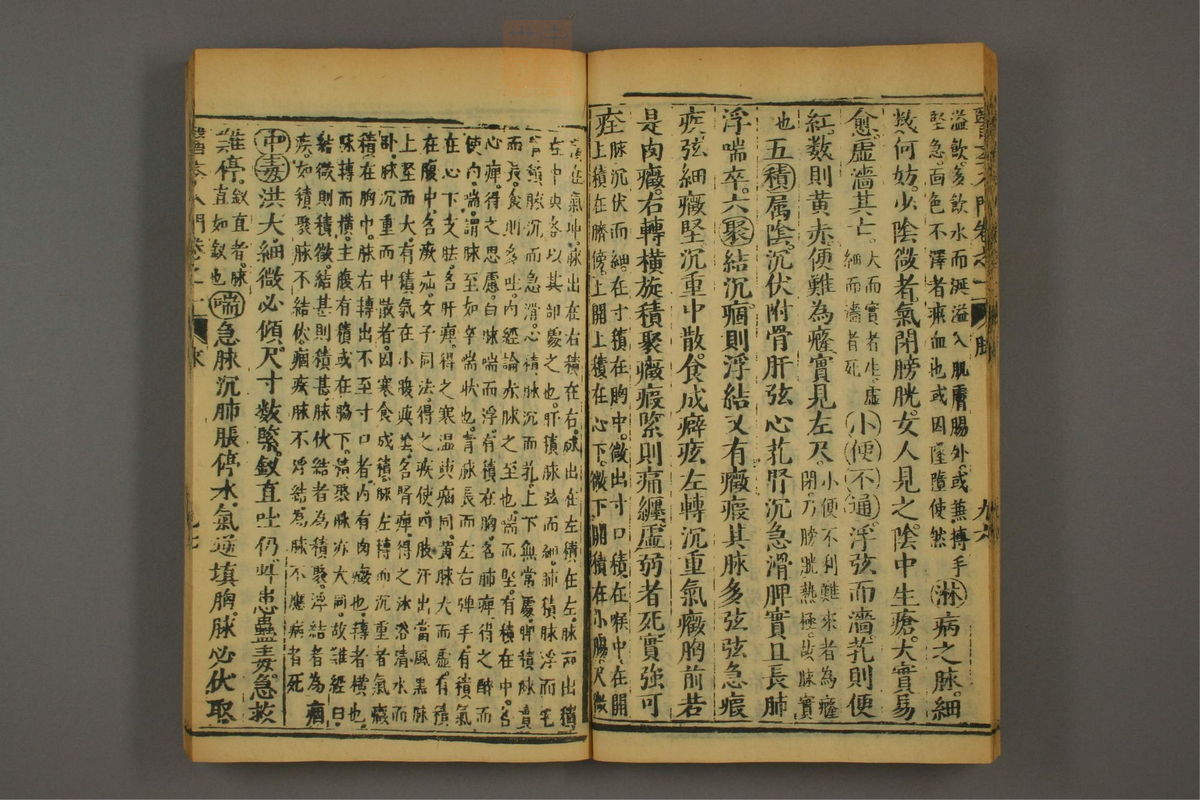 溢飲多飲水而涎溢入肌膚腸外或無摶手
堅急面色不澤者瘀血也或因隆障使然
淋病之脉細
數何妨少陰微者氣閉膀胱女人見之陰中生瘡大實易
愈虛濇其亡
大而實者生虛
細而濇者死
小便不通浮弦而濇芤則便
紅數則黃赤便難為癃實見左尺
小便不利難來者為癃
閉乃膀胱熱極故脉實
也
五積属陰沉伏附骨肝弦心芤腎沉急滑脾實且長肺
浮喘卒六聚結沉痼則浮結又有癥瘕其脉多弦弦急瘕
疾弦細癥堅沉重中散食成癖痃左轉沉重氣癥胸前若
是肉癥右轉橫旋積聚癥瘕緊則痛纏虛弱者死實強可
痊
脉沉伏而細在寸積在胸中微出寸口積在喉中在關
上積在臍傍上關上積在心下微下關積在小腹尺微
積在氣冲脉出在右積在右脉出在左積在左脉兩出積
在中央各以其部處之也肝積脉弦而細肺積脉浮而毛
腎積脉沉而急滑心積脉沉而芤上下無常處脾積脉實
而長食則多吐內經論赤脉之至也喘而堅有積在中名
心痺得之思慮白脉喘而浮有積在胸名肺痺得之醉而
使內喘謂脉至如卒喘狀也青脉長而左右弹手有積氣
在心下支胠名肝痺得之寒溫與疝同黃脉大而虛有積
在腹中名厥疝女子同法得之疾使四肢汗出當風黑脉
上堅而大有積氣在小腹與陰名腎痺得之沐浴清水而
卧脉沉重而中散者因寒食成積脉左轉而沉重者氣癥
積在胸中脉右轉出不至寸口者內有肉癥也轉者橫也
脉轉而橫主腹有積或在脇下積聚脉亦大同故難經曰
結微則積微結甚則積甚脉伏結者為積聚浮結者為痼
疾如積聚脉不結伏痼疾脉不浮結為脉不應病者死
中毒洪大細微必傾尺寸數緊釵直吐仍此患蠱毒急救
難停
釵直者脉
直如釵也
喘急脉沉肺脹停水氣逆填胸脉必伏取
醫學入門卷之一
脉
九六
醫學入門卷之一
脉
九七